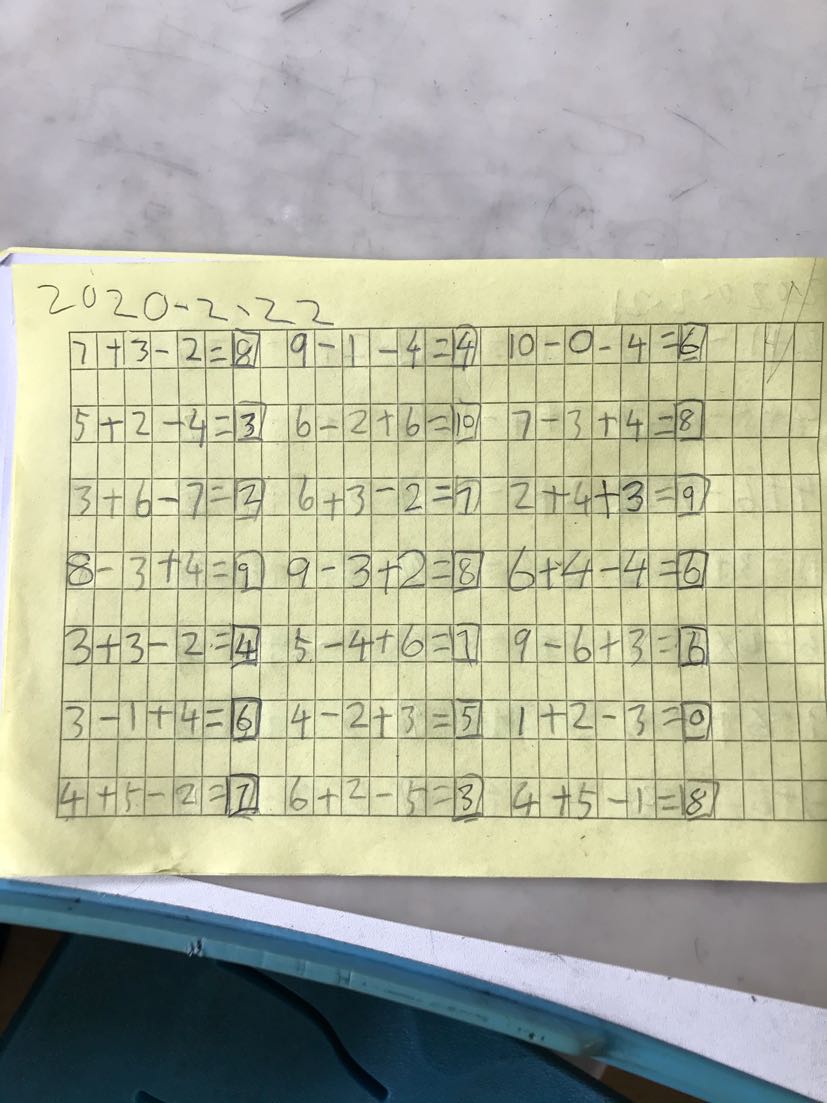 2020-2、22
7+3-2=8 9-1-4=4 10-0-4=6
5+2-4=3 6-2+6=10 7-3+4=8
3+6-7=2 6+3-2=7 2+4+3=9
8-3+4=9 9-3+2=8 6+4-4=6
3+3-2=4 5-4+6=7 9-6+3=6
3-1+4=6 4-2+3=5 1+2-3=0
4+5-2=7 6+2-5=3 4+5-1=8